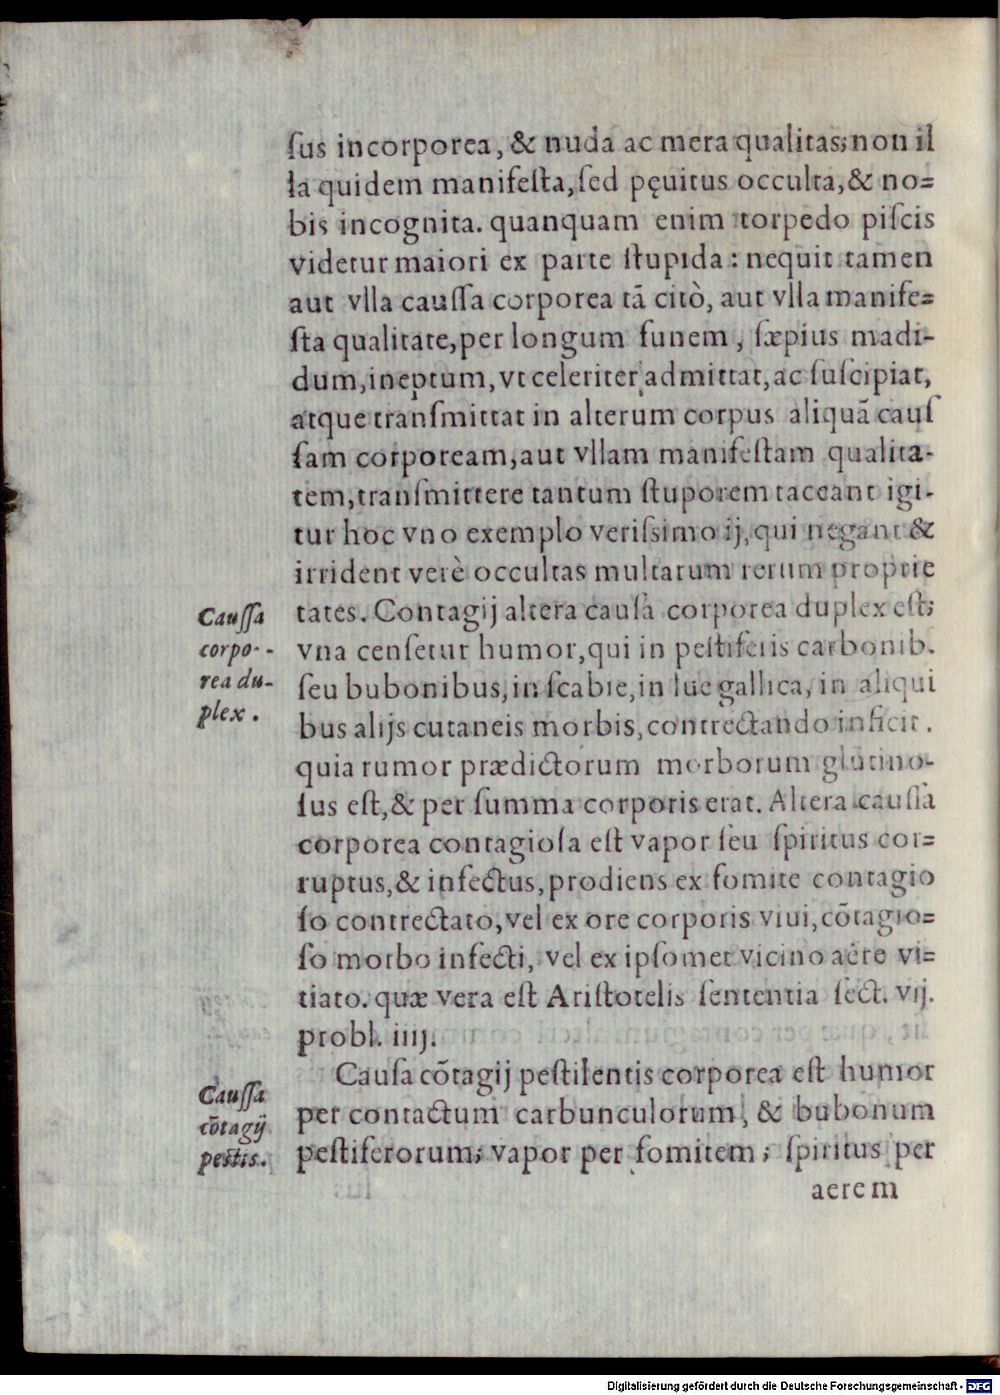 ſus incorporea, & nuda ac mera qualitas; non il
la quidem manifeſta, ſed pęuitus occulta, & no=
bis incognita. quanquam enim torpedo piſcis
videtur maiori ex parte ſtupida: nequit tamen
aut vlla cauſſa corporea tã citò, aut vlla manife=
ſta qualitate, per longum funem, ſæpius madi-
dum, ineptum, vt celeriter admittat, ac ſuſcipiat,
atque tranſmittat in alterum corpus aliquã cauſ
ſam corpoream, aut vllam manifeſtam qualita-
tem, tranſmittere tantum ſtuporem taceant igi-
tur hoc vno exemplo veriſsimo ij, qui negant &
irrident verè occultas multarum rerum proprie
tates. Contagij altera cauſa corporea duplex eſt;
vna cenſetur humor, qui in peſtiferis carbonib.
ſeu bubonibus, in ſcabie, in lue gallica, in aliqui
bus alijs cutaneis morbis, contrectando inficit.
quia rumor prædictorum morborum glutino-
ſus eſt, & per ſumma corporis erat. Altera cauſſa
corporea contagioſa eſt vapor ſeu ſpiritus cor=
ruptus, & infectus, prodiens ex fomite contagio
ſo contrectato, vel ex ore corporis viui, cõtagio=
ſo morbo infecti, vel ex ipſomet vicino aëre vi=
tiato. quæ vera eſt Ariſtotelis ſententia ſect. vij.
probl. iiij.
Cauſſa
corpo-
rea du-
plex.
Cauſa cõtagij peſtilentis corporea eſt humor
per contactum carbunculorum, & bubonum
peſtiferorum; vapor per fomitem; ſpiritus per
aerem
Cauſſa
cõtagij
peſtis.
Digitalisierung gefördert durch die Deutsche Forschungsgemeinschaft - DFG